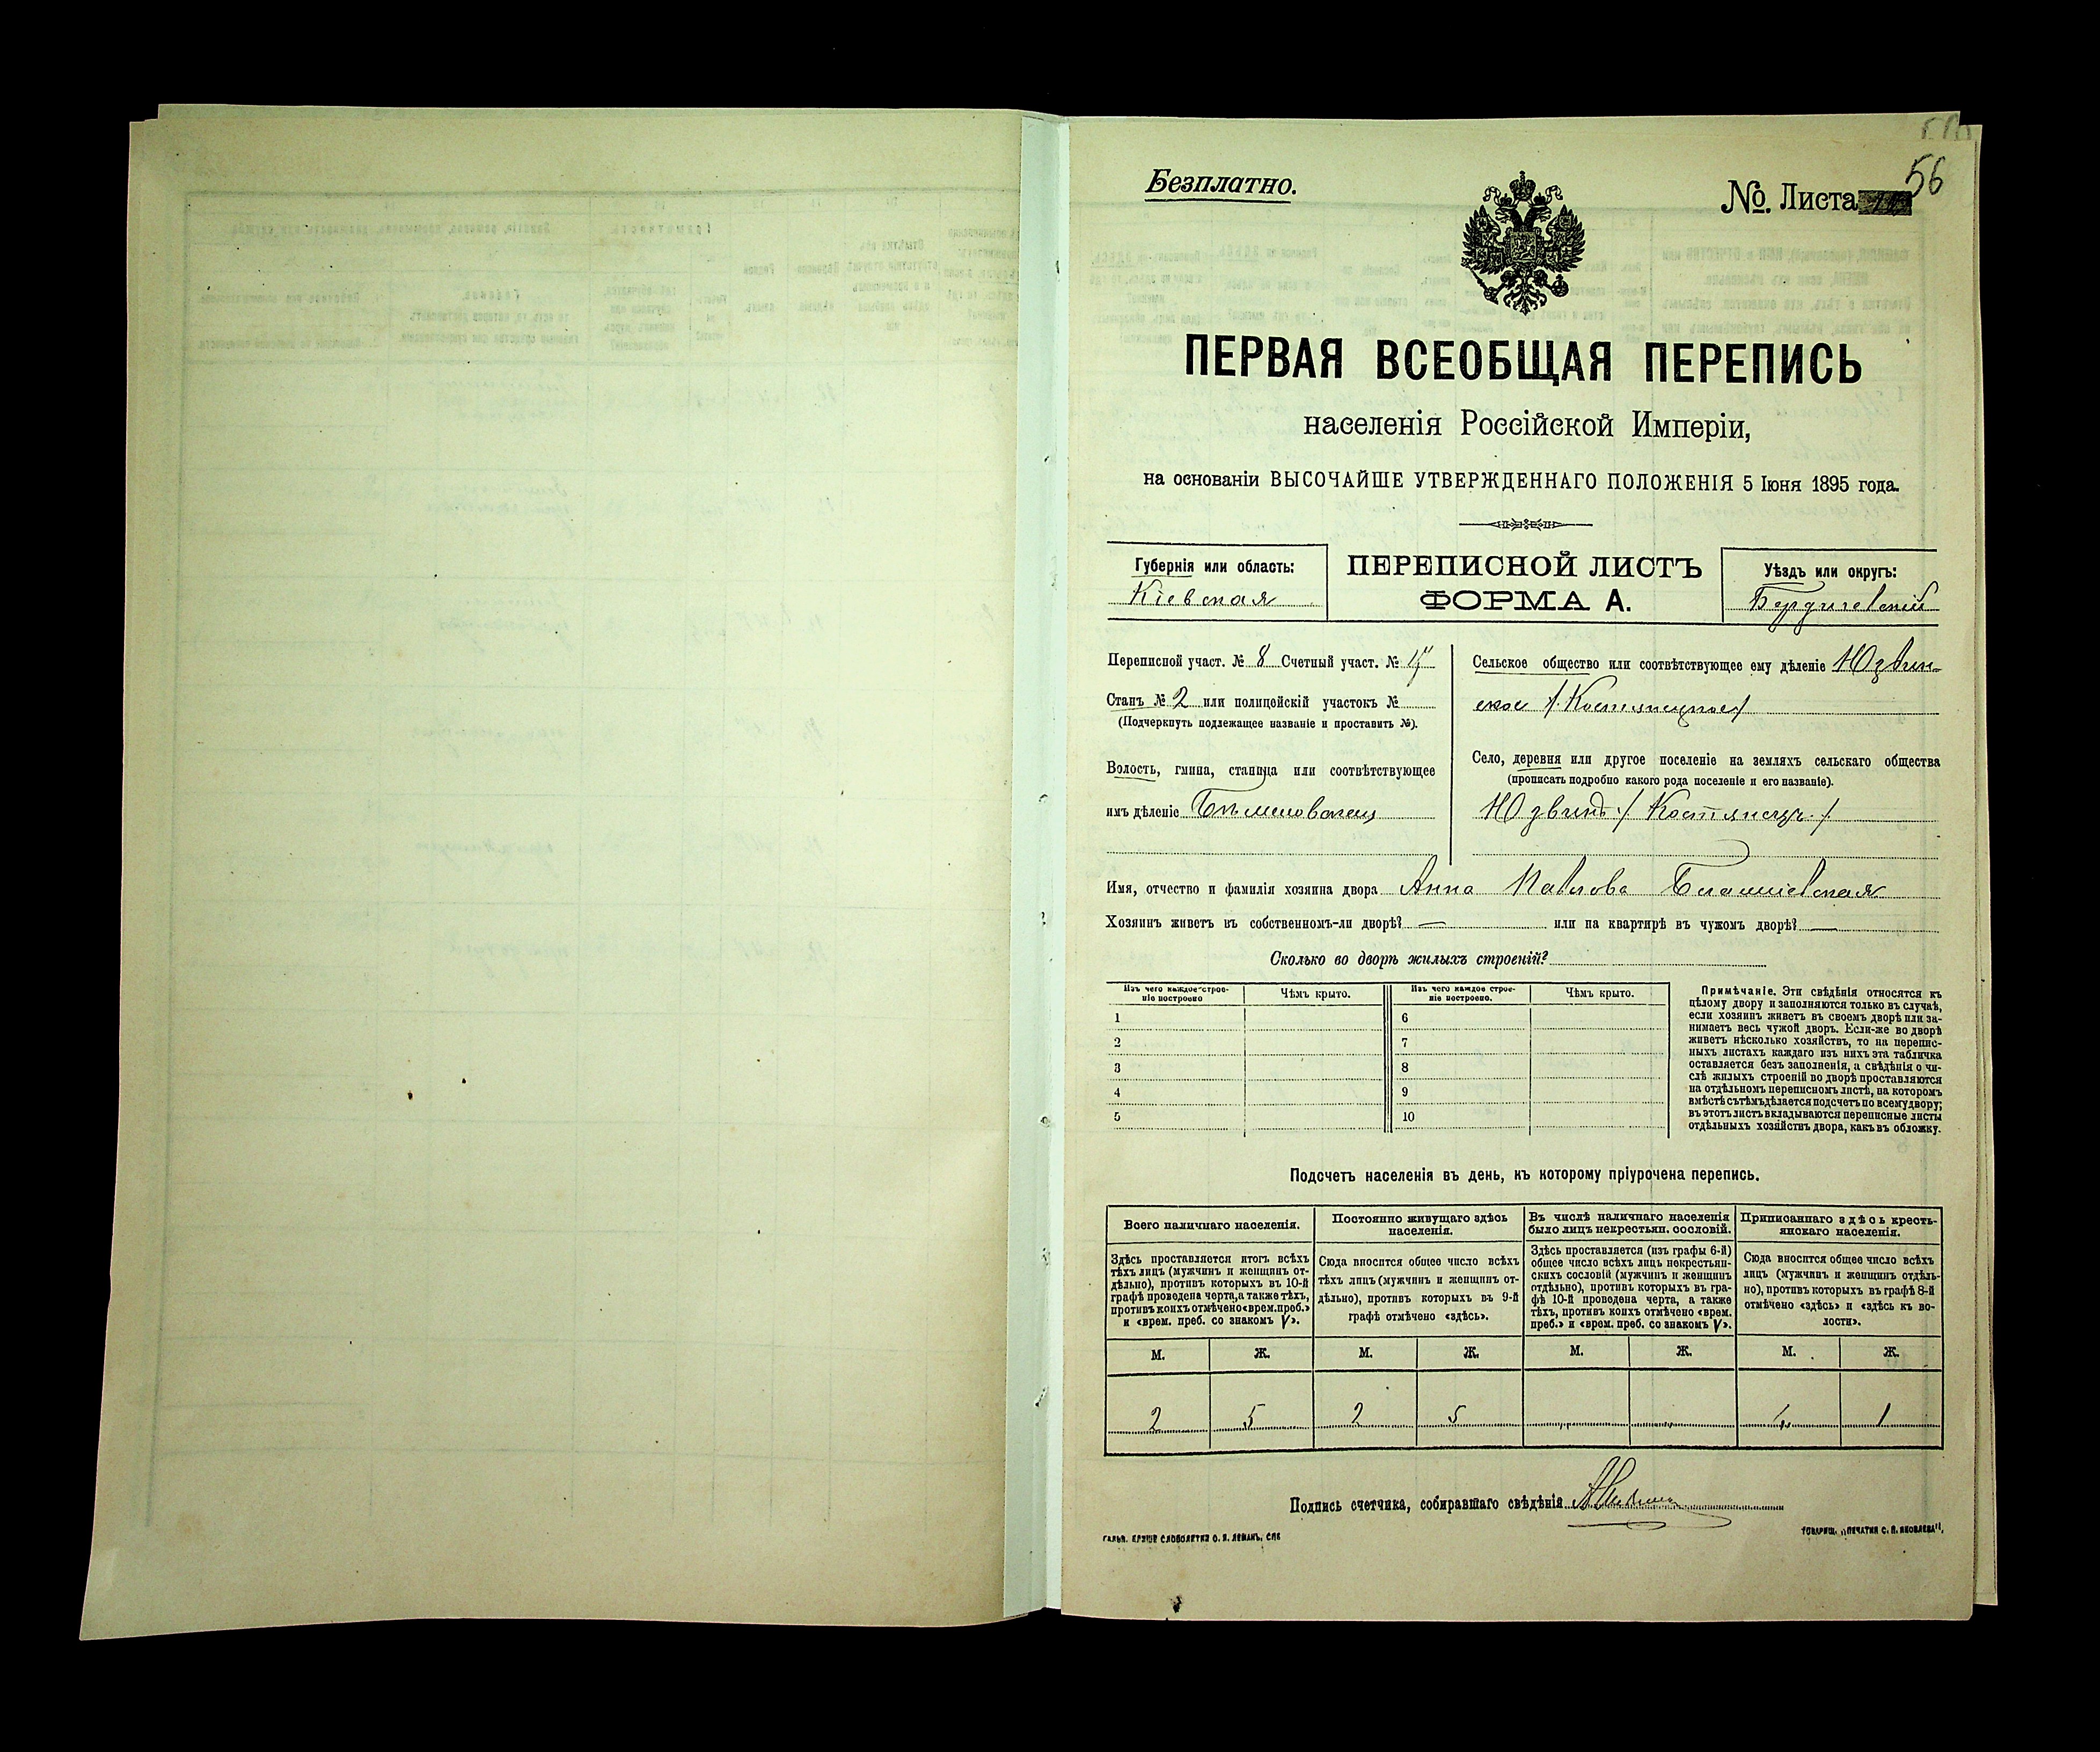 56
Безплатно.
№. Листа
ПЕРВАЯ ВСЕОБЩАЯ ПЕРЕПИСЬ
населенія Россійской Имперіи,
на основаніи ВЫСОЧАЙШЕ УТВЕРЖДЕННАГО ПОЛОЖЕНІЯ 5 Іюня 1895 года.
Губернія или область:
Кіевская
ПЕРЕПИСНОЙ ЛИСТЪ
ФОРМА А.
Уѣздъ или округъ:
Бердичевскій
Переписной участ. № 8 Счетный участ. №
Станъ № 2 или полицейскій участокъ №
(Подчеркнуть подлежащее названіе и проставить №).
Волость, гмина, станица или соотвѣтствующее
имъ дѣленіе
Сельское общество или соотвѣтствующее ему дѣленіе Юзвин-
ское
Село, деревня или другое поселеніе на земляхъ сельскаго общества
(прописать подробно какого рода поселеніе и его названіе).
Юзвинъ / Костянецъ /
Имя, отчество и фамилія хозяина двора Анна Павлова
Хозяинъ живетъ въ собственномъ-ли дворѣ? — или на квартирѣ въ чужомъ дворѣ? —
Сколько во дворѣ жилыхъ строеній?
Изъ чего каждое строе-
ніе построено
Чѣмъ крыто.
Изъ чего каждое строе-
ніе построено.
Чѣмъ крыто.
1 6
2 7
3 8
4 9
5 10
Примѣчаніе. Эти свѣдѣнія относятся къ
цѣлому двору и заполняются только въ случаѣ,
если хозяинъ живетъ въ своемъ дворѣ или за-
нимаетъ весь чужой дворъ. Если-же во дворѣ
живетъ нѣсколько хозяйствъ, то на перепис-
ныхъ листахъ каждаго изъ нихъ эта табличка
оставляется безъ заполненія, а свѣдѣнія о чи-
слѣ жилыхъ строеній во дворѣ проставляются
на отдѣльномъ переписномъ листѣ, на которомъ
вмѣстѣ съ тѣмъ дѣлается подсчетъ по всему двору;
въ этотъ листъ вкладываются переписные листы
отдѣльныхъ хозяйствъ двора, какъ въ обложку.
Подсчетъ населенія въ день, къ которому пріурочена перепись.
Всего наличнаго населенія.
Здѣсь проставляется итогъ всѣхъ
тѣхъ лицъ (мужчинъ и женщинъ от-
дѣльно), противъ которыхъ въ 10-й
графѣ проведена черта, а также тѣхъ,
противъ коихъ отмѣчено «врем. преб.»
и «врем. преб. со знакомъ V».
Постоянно живущаго здѣсь
населенія.
Сюда вносится общее число всѣхъ
тѣхъ лицъ (мужчинъ и женщинъ от-
дѣльно), противъ которыхъ въ 9-й
графѣ отмѣчено «здѣсь».
Въ числѣ наличнаго населенія
было лицъ некрестьян. сословій.
Здѣсь проставляется (изъ графы 6-й)
общее число всѣхъ лицъ некрестьян-
скихъ сословій (мужчинъ и женщинъ
отдѣльно), противъ которыхъ въ гра-
фѣ 10-й проведена черта, а также
тѣхъ, противъ коихъ отмѣчено «врем.
преб.» и «врем. преб. со знакомъ V».
Приписаннаго здѣсь кресть-
янскаго населенія.
Сюда вносится общее число всѣхъ
лицъ (мужчинъ и женщинъ отдѣль-
но), противъ которыхъ въ графѣ 8-й
отмѣчено «здѣсь» и «здѣсь къ во-
лости».
М. Ж. М. Ж. М. Ж. М. Ж.
2 5 2 5 1
Подпись счетчика, собиравшаго свѣдѣнія
ГАЛЬВ. КРЫШЕ СЛОВОЛИТНИ О. И. ЛЕМАНЪ, СПБ
ТОВАРИЩ. „ПЕЧАТНЯ С. П. ЯКОВЛЕВА",